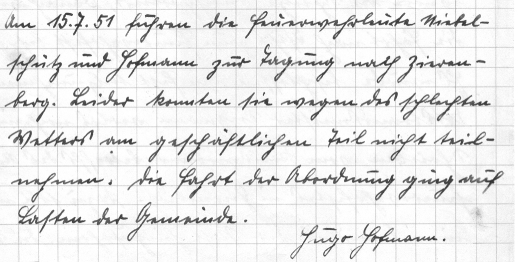 Am 15.7.51 fuhren die Feuerwehrleute Nickel-
schütz und Hofmann zur Tagung nach Zieren-
berg. Leider konnten sie wegen des schlechten
Wetters am geschäftlichen Teil nicht teil-
nehmen. Die Fahrt der Abordnung ging auf
Lasten der Gemeinde.
Hugo Hofmann.